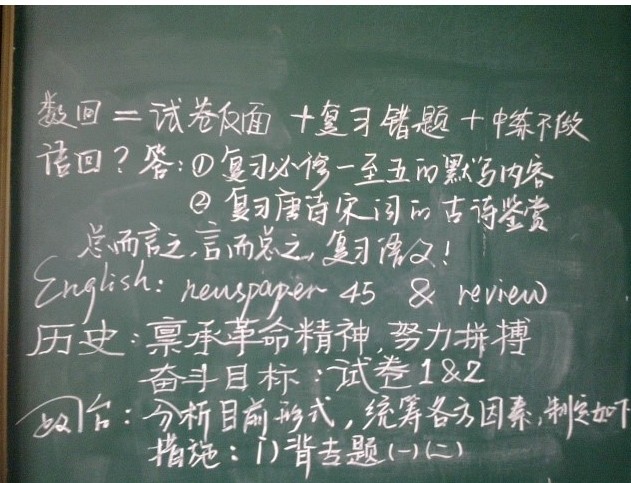 数回 = 试卷反面 + 复习错题 + 中练不做
语回？答：① 复习必修一至五的默写内容
② 复习唐诗宋词的古诗鉴赏
总而言之，言而总之，复习语文！
English: newspaper 45 & review
历史：禀承革命精神，努力拼搏
奋斗目标：试卷1&2
政治：分析目前形式，统筹各方因素，制定如下
措施：1) 背专题(一)(二)